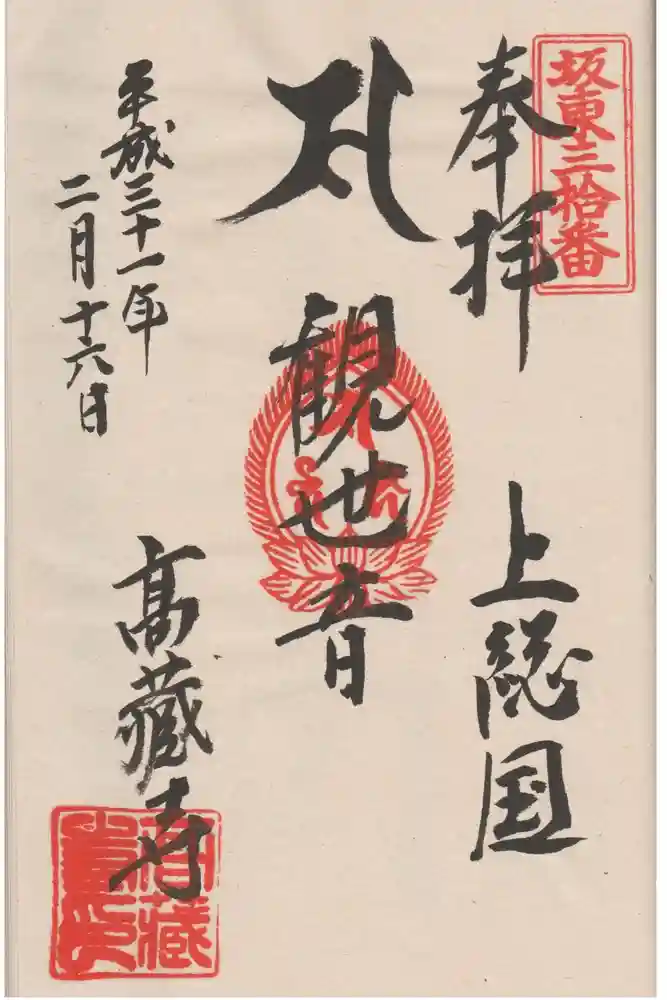 坂東三拾番
奉拝
上総国
観世音
平成三十一年
二月十六日
高蔵寺